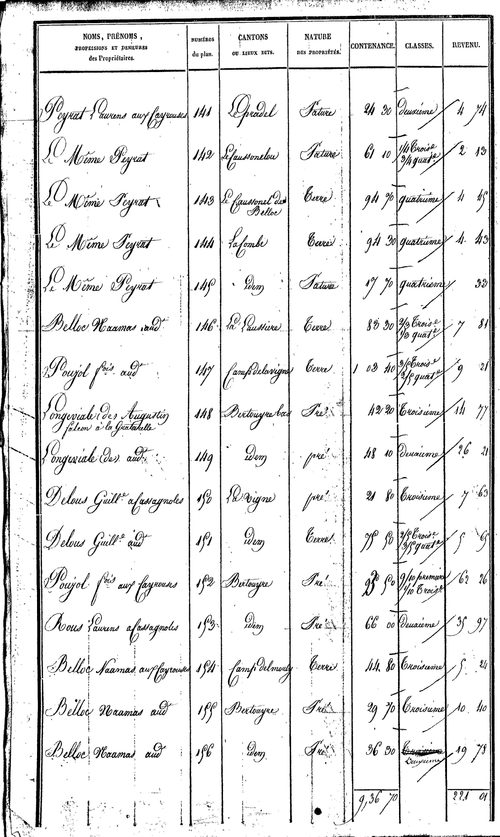 NOMS, PRÉNOMS, PROFESSIONS ET DEMEURES des Propriétaires. NUMÉROS du plan. CANTONS OU LIEUX DITS. NATURE DES PROPRIÉTÉS. CONTENANCE. CLASSES. REVENU.
Peyrat Laurens aux Cayrouses 141 Le pradel Pature 24 30 deuxième 4 74
Le Même Peyrat 142 Le Caussonelou Pature 61 10 1/4 Trois.e 3/4 quat.e 2 13
Le Même Peyrat 143 Le Caussonel de Belloc Terre 94 70 quatrième 4 45
Le Même Peyrat 144 La Combe Terre 94 30 quatrième 4 43
Le Même Peyrat 145 idem Pature 17 70 quatrième 33
Belloc Naamas aud.t 146 La Paussière Terre 83 30 2/3 Trois.e 1/3 quat.e 7 81
Poujol f.ois aud.t 147 Camp de la vigne Terre 1 03 40 Trois.e quat.e 9 21
Longeviale des Augustin 148 Bertouyre bas Pré 42 20 Troisième 14 77
Longeviale de aud.t 149 idem pré 48 10 deuxième 26 21
Delous Guill.e a Cassagnoles 150 La Vigne pré 21 80 Troisième 7 63
Delous Guill.e aud.t 151 idem Terre 75 50 2/5 Trois.e 3/5 quat.e 5 65
Poujol f.ois aux Cayrouses 152 Bertouyre Pré 50 9/10 première 1/10 Trois.e 62 26
Rous Laurens a Cassagnoles 153 idem Pré 66 00 deuxième 35 97
Belloc Naamas aux Cayrouses 154 Camp del mouly Terre 44 80 Troisième 5 24
Belloc Naamas aud.t 155 Bertouyre Pré 29 70 Troisième 10 40
Belloc Naamas aud.t 156 idem Pré 36 30 deuxième 19 78
9,36 70 221 01